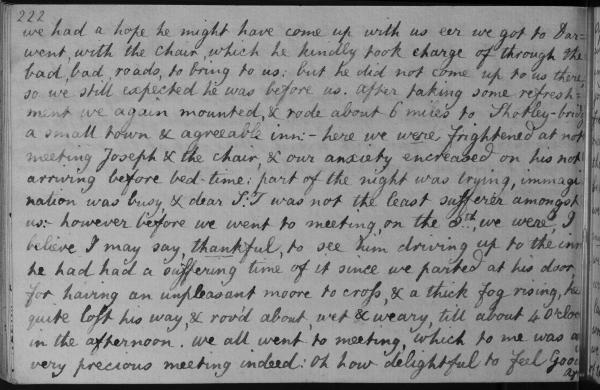 222
we had a hope he might have come up with us eer we got to Dar-
went, with the chair, which he kindly took charge of through the
bad, bad roads, to bring to us: but he did not come up to us there,
so we still expected he was before us. after taking some refresh-
ment we again mounted, & rode about 6 miles to Shotley-bridg
a small town & agreeable inn:- here we were frightened at not
meeting Joseph & the chair, & our anxiety encreased on his not
arriving before bed-time: part of the night was trying, immagi
nation was busy & dear S:T was not the least sufferer amongst
us:- however before we went to meeting, on the 3rd, we were, I
believe I may say, thankful, to see him driving up to the inn
he had had a suffering time of it since we parted at his door,
for having an unpleasant moore to cross, & a thick fog rising, he
quite lost his way, & rov'd about, wet & weary, till about 4 O'cloc
in the afternoon. we all went to meeting, which to me was a
very precious meeting indeed: Oh how delightful to feel Good